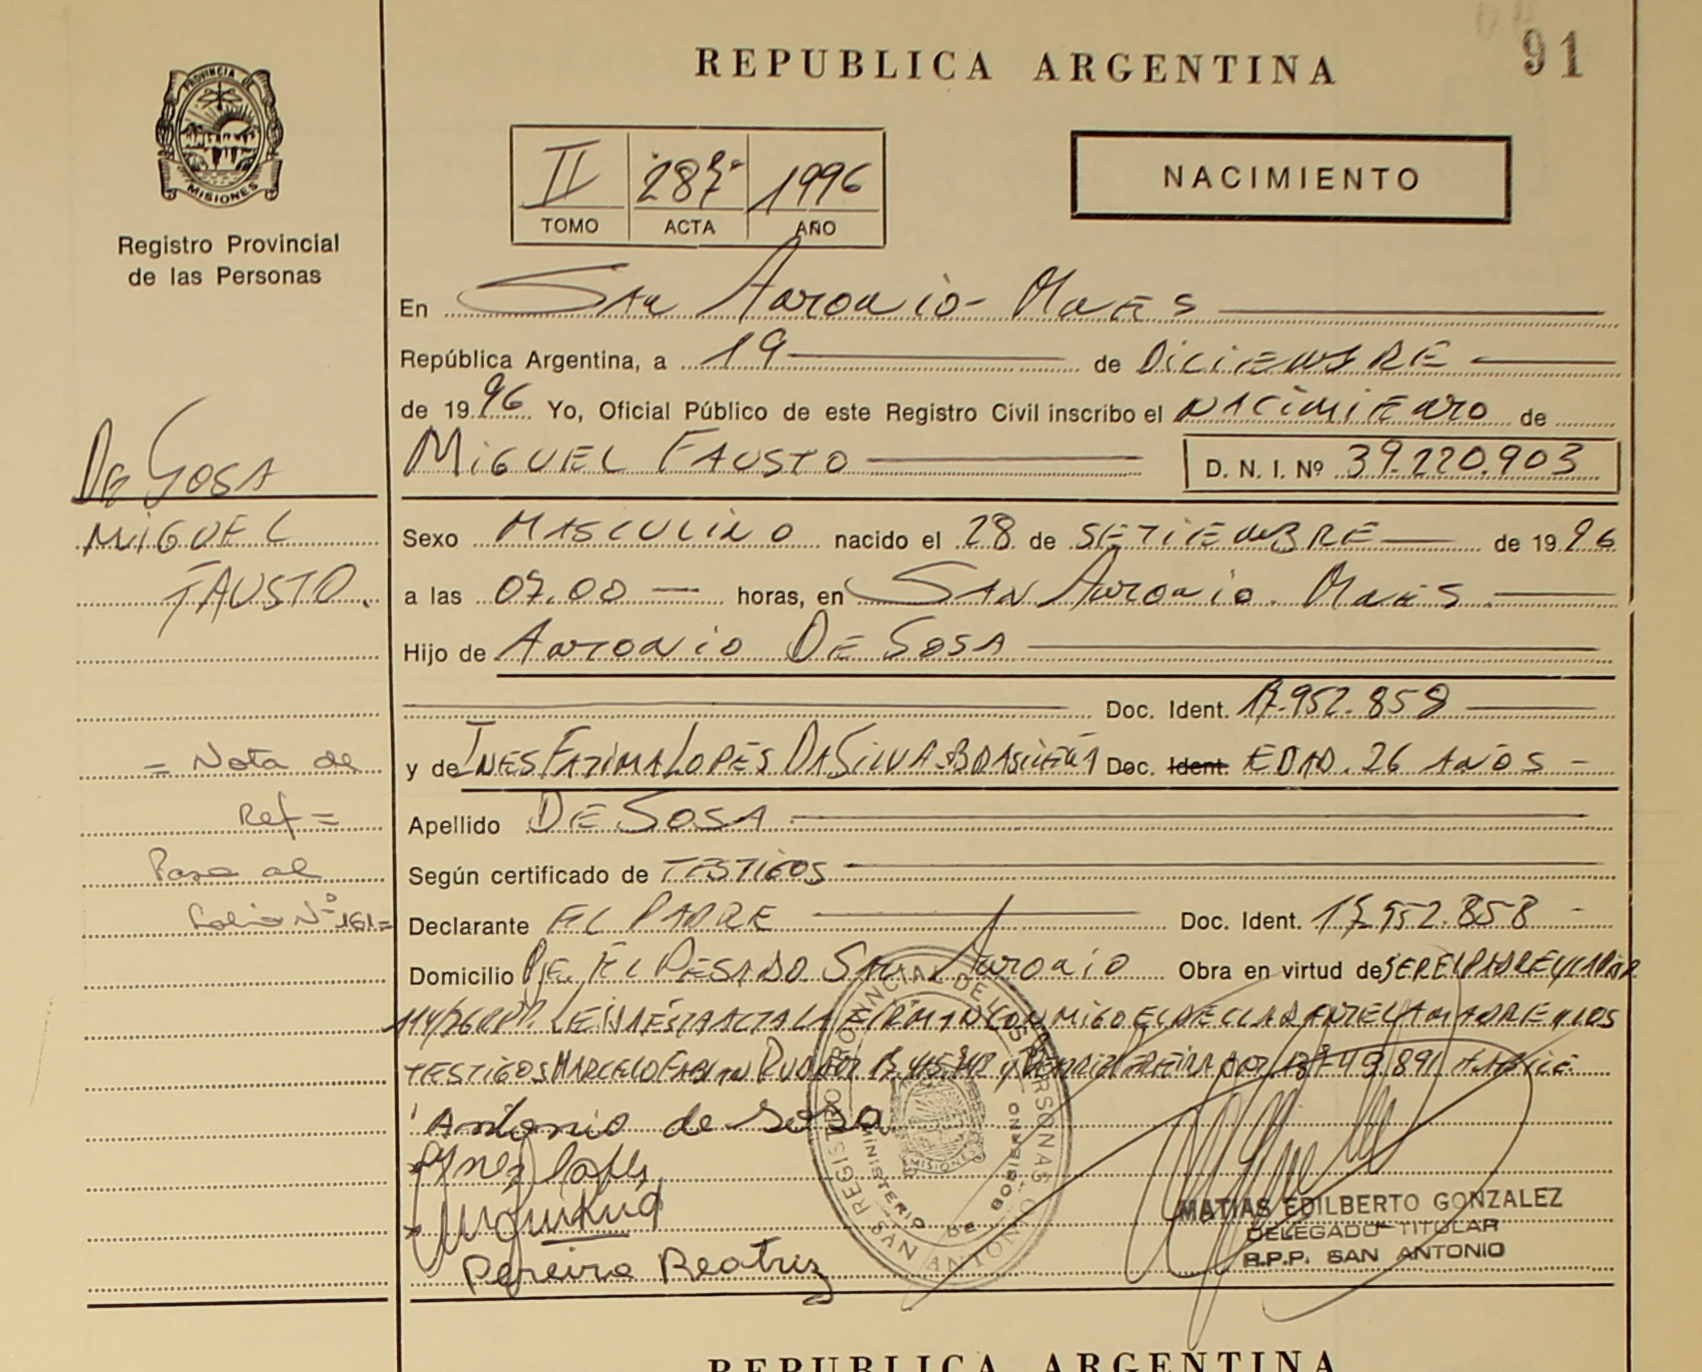 91
REPUBLICA ARGENTINA
PROVINCIA DE
MISIONES
Registro Provincial
de las Personas
II 287 1996
TOMO ACTA AÑO
NACIMIENTO
En San Antonio - Mnes
República Argentina, a 19 de DICIEMBRE
de 1996 Yo, Oficial Público de este Registro Civil inscribo el NACIMIENTO de
MIGUEL FAUSTO D. N. I. Nº 39.220.903
DE SOSA
MIGUEL
FAUSTO.
Sexo MASCULINO nacido el 28 de SETIEMBRE de 1996
a las 07.00 horas, en SAN Antonio. Mnes
Hijo de Antonio DE SOSA
Doc. Ident. 17.952.858
y de INES FATIMA LOPES DA SILVA - BRASILEÑA Doc. Ident. EDAD. 26 AÑOS -
Apellido DE SOSA
Según certificado de TESTIGOS
Declarante EL PADRE Doc. Ident. 17.952.858 -
Domicilio Pje. EL PESADO SAN Antonio Obra en virtud de SER EL PADRE Y
= Nota de
Ref =
Pase al
Folio Nº 161=
LEIDA ESTA ACTA LA FIRMAN CONMIGO EL DECLARANTE LA MADRE Y LOS
TESTIGOS MARCELO FABIAN
Antonio de Sosa
Ynez Lopes
Pereira Beatriz
REGISTRO PROVINCIAL DE LAS PERSONAS
MINISTERIO DE GOBIERNO
MISIONES
SAN ANTONIO
MATIAS EDILBERTO GONZALEZ
DELEGADO TITULAR
R.P.P. SAN ANTONIO
REPUBLICA ARGENTINA